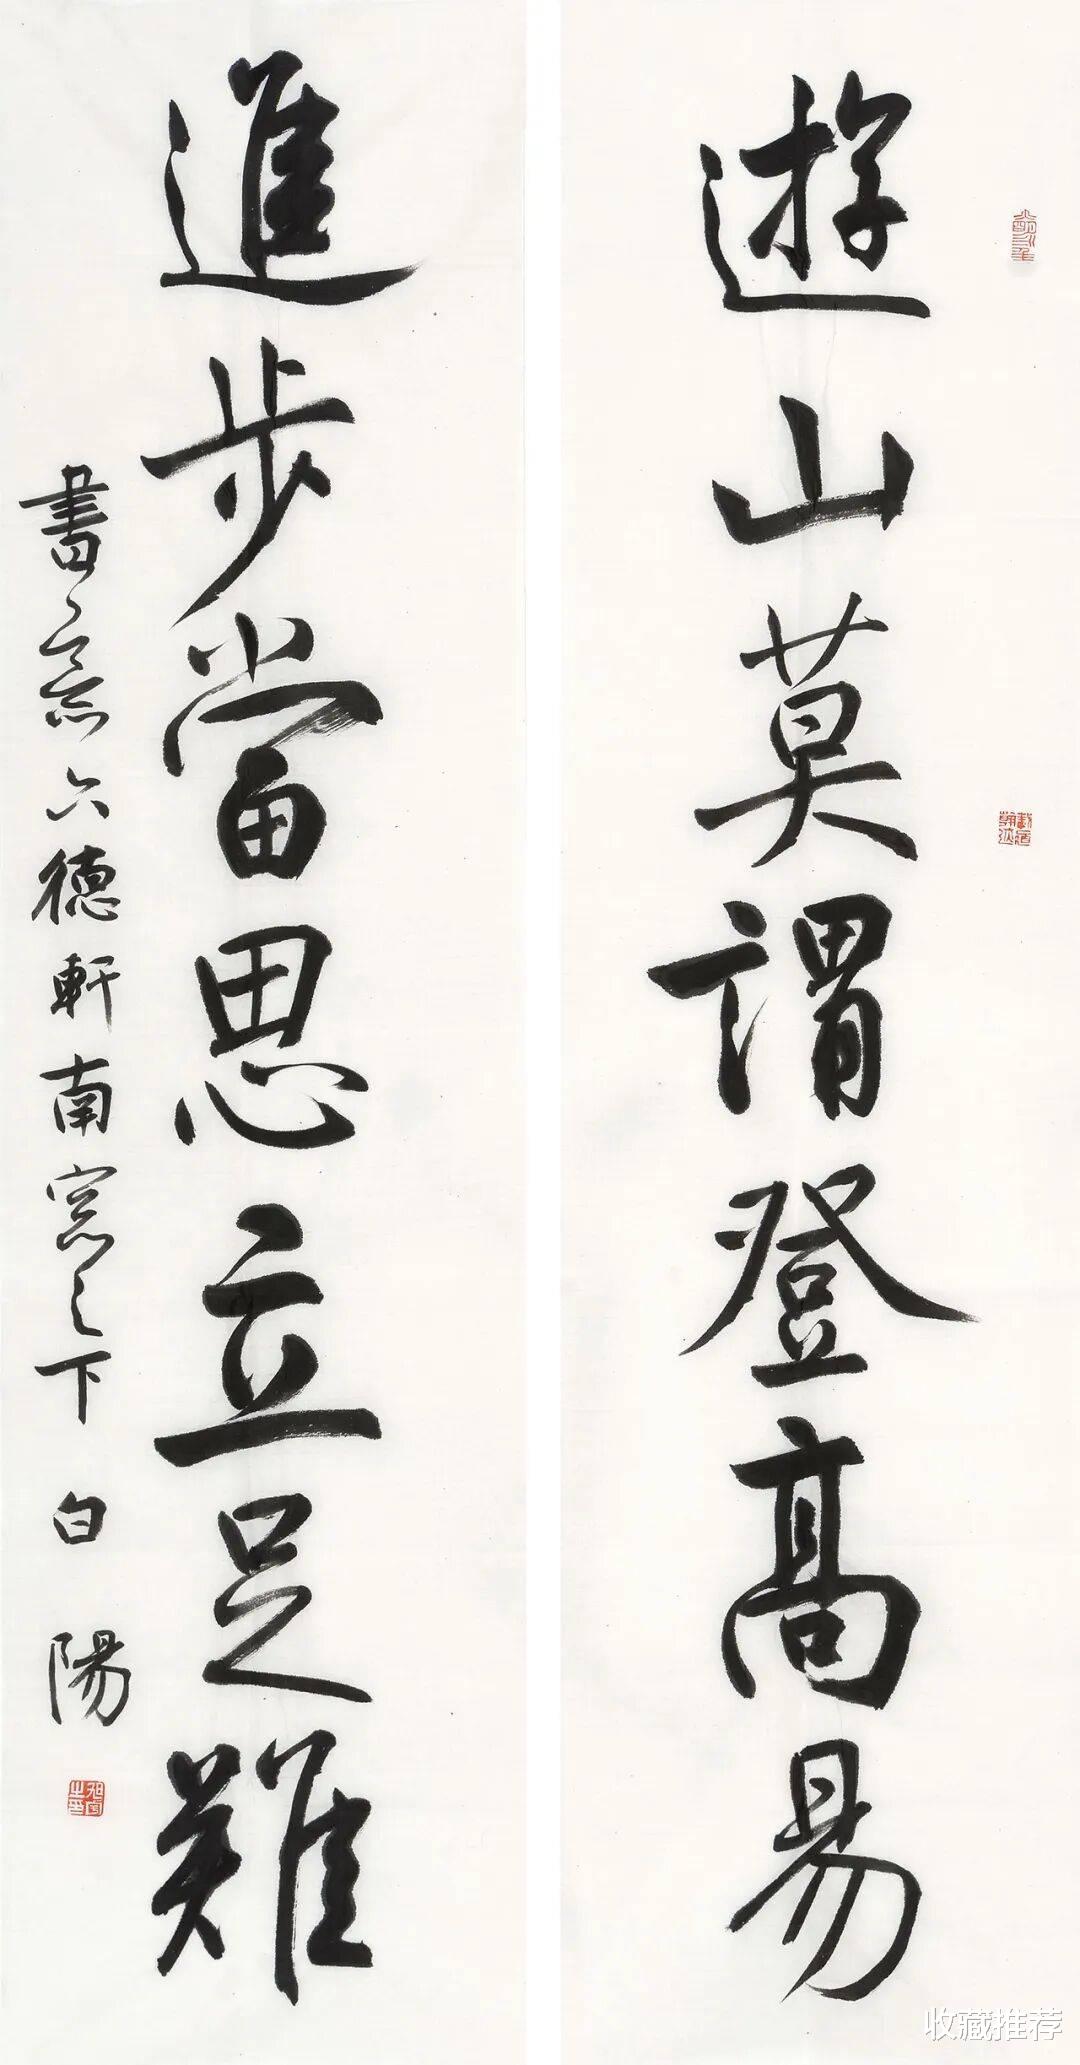 遊山莫謂登高易
進步當思立足難
書六德軒南窓之下 白陽
收藏推荐